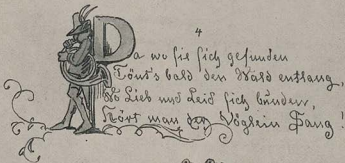 4
Da wo sie sich gefunden
Tönt's bald den Wald entlang,
Wo Lieb und Leid sich bunden,
Hört man der Vöglein Sang!